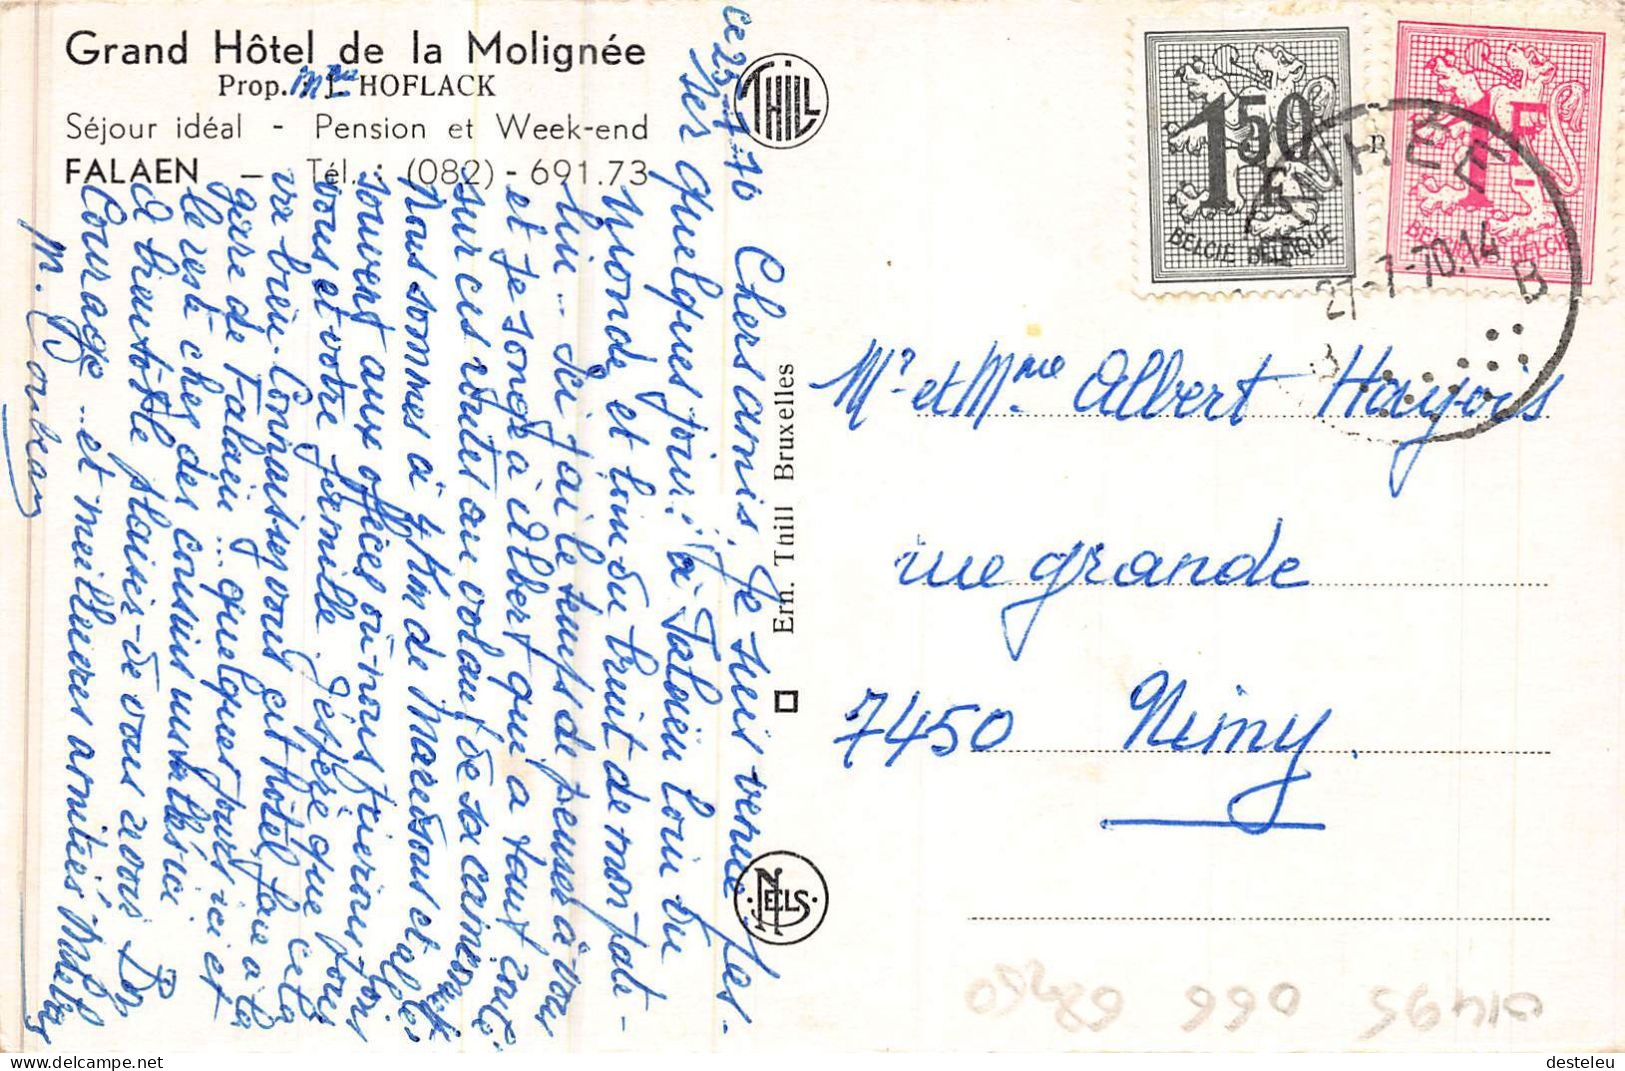 Grand Hôtel de la Molignée
Prop. : Mme J. HOFLACK
Séjour idéal - Pension et Week-end
FALAEN — Tél. : (082) - 691.73
ce 25-7-70
Chers amis, Je suis venue pas-
ser quelques jours ici à Falaën loin du
monde et loin du bruit de mon pate-
lin... Ici j'ai le temps de penser à vous
et je songe à Albert qui a tant roulé
sur ces routes au volant de sa camionnette
Nous sommes à 4 Km de Maredsous et allons
souvent aux offices où nous prierons pour
vous et votre famille. J'espère que tout
va bien. Connaissez vous cet hôtel face à la
gare de Falaën ... quelques jours ici et
le reste chez des cousins
A bientôt le plaisir de vous revoir
Courage... et meilleures amitiés
THILL
Ern. Thill Bruxelles
NELS
1F50
BELGIE BELGIQUE
1F
BELGIQUE BELGIE
ANHEE
27-7-70.14
B
Mr et Mme Albert Hayois
rue grande
7450 Nimy.
01495 066 68250
desteleu